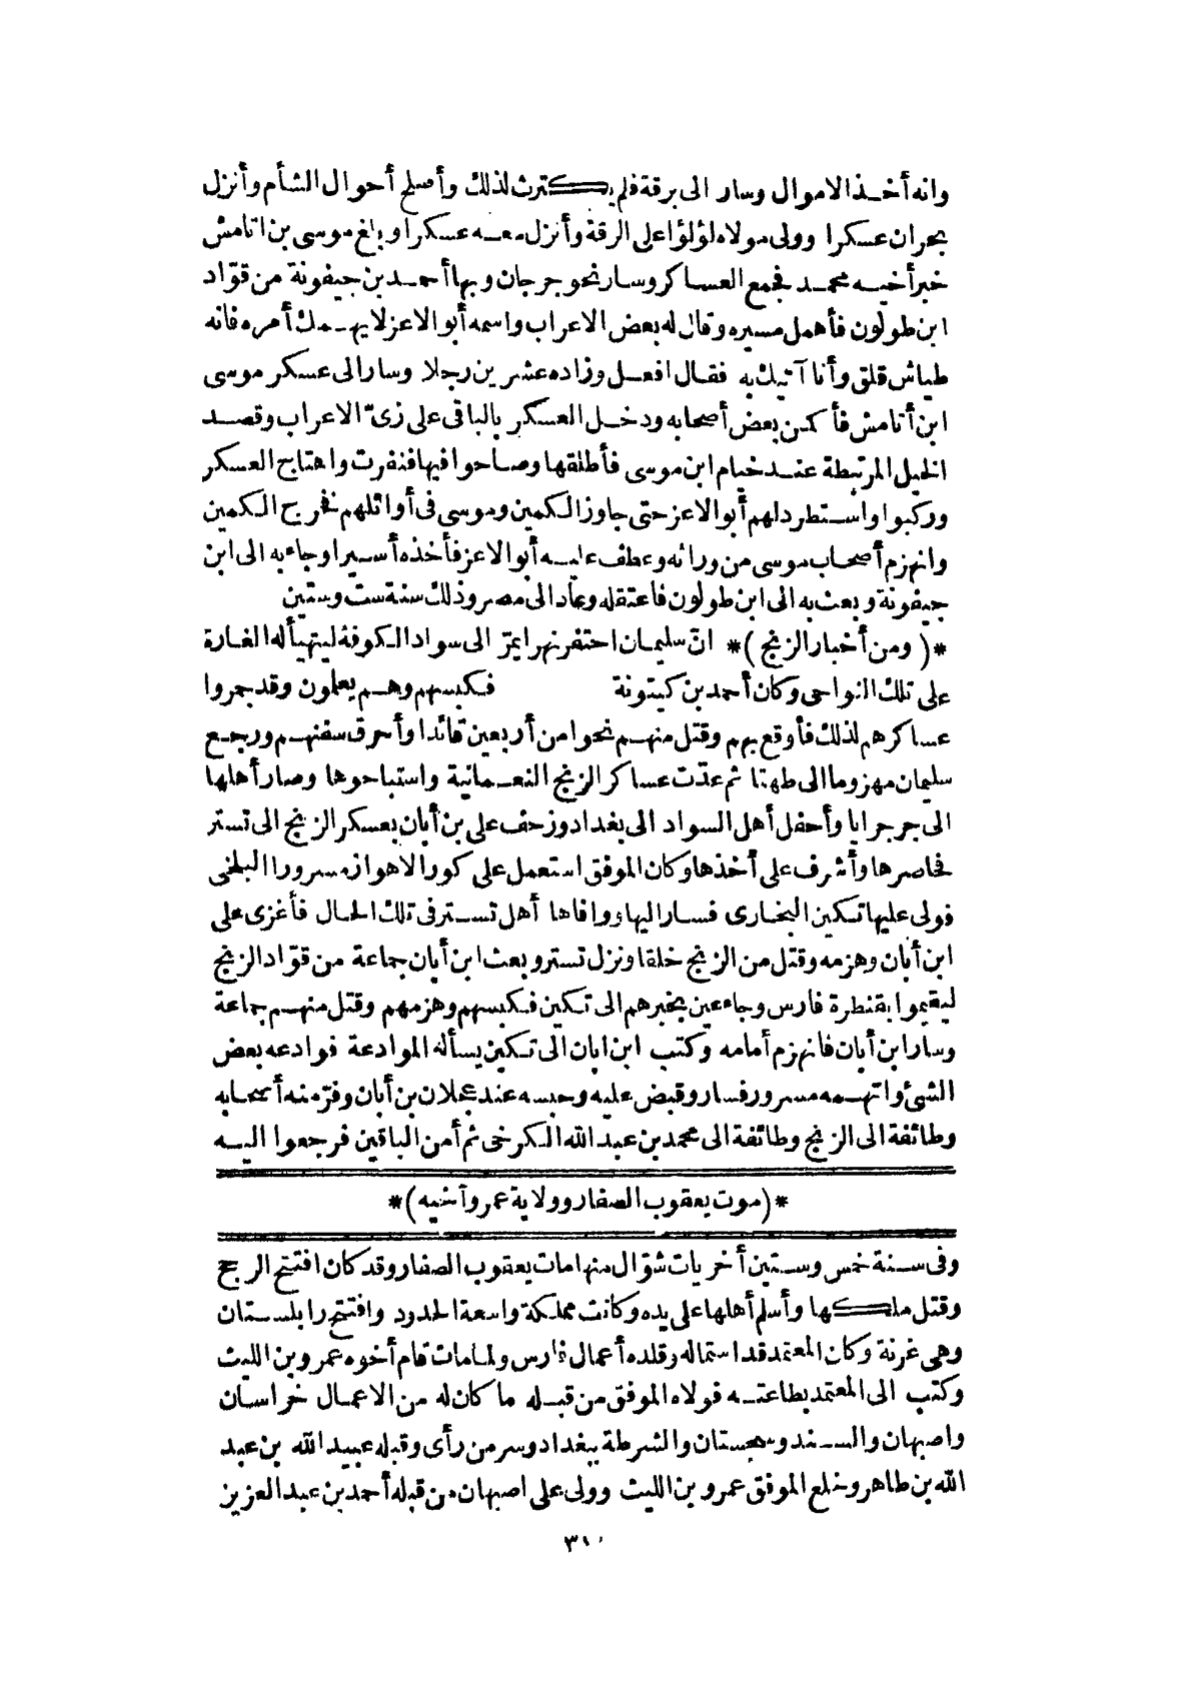 وانه أخذ الاموال وسار الى برقة فلم يكترث لذلك وأصلح أحوال الشأم وأنزل
بحران عسكرا وولى مولاه لؤلؤا على الرقة وأنزل معه عسكرا وبلغ موسى بن اتامش
خبر أخيه محمد فجمع العساكر وسار نحو جرجان وبها أحمد بن جيفونة من قوّاد
ابن طولون فأهمل مسيره وقال له بعض الاعراب واسمه أبو الاعز لا يهمك أمره فانه
طياش قلق وأنا آتيك به فقال افعل وزاده عشرين رجلا وسار الى عسكر موسى
ابن أتامش فأكمن بعض أصحابه ودخل العسكر بالباقى على زىّ الاعراب وقصد
الخيل المرتبطة عند خيام ابن موسى فأطلقها وصاحوا فيها فنفرت واهتاج العسكر
وركبوا واستطرد لهم أبو الاعز حتى جاوز الكمين وموسى فى أوائلهم فخرج الكمين
وانهزم أصحاب موسى من ورائه وعطف عليه أبو الاعز فأخذه أسيرا وجاء به الى ابن
جيفونة وبعث به الى ابن طولون فاعتقله وعاد الى مصر وذلك سنة ست وستين
*(ومن أخبار الزنج)* انّ سليمان احتفر نهرا يمرّ الى سواد الكوفة ليتهيأ له الغارة
على تلك النواحى وكان أحمد بن كيتونة فكبسهم وهم يعملون وقد جمروا
عساكرهم لذلك فأوقع بهم وقتل منهم نحوا من أربعين قائدا وأحرق سفنهم ورجع
سليمان مهزوما الى طهتا ثم عدّت عساكر الزنج النعمانية واستباحوها وصار أهلها
الى جرجرايا وأحفل أهل السواد الى بغداد وزحف على بن أبان بعسكر الزنج الى تستر
فحاصرها وأشرف على أخذها وكان الموفق استعمل على كور الاهواز مسرورا البلخى
فولى عليها تكين البخارى فسار اليها ووافاها أهل تستر فى تلك الحال فأغزى على
ابن أبان وهزمه وقتل من الزنج خلقا ونزل تستر وبعث ابن أبان جماعة من قوّاد الزنج
ليقيموا بقنطرة فارس وجاء عين بخبرهم الى تكين فكبسهم وهزمهم وقتل منهم جماعة
وسار ابن أبان فانهزم أمامه وكتب ابن ابان الى تكين يسأله الموادعة فوادعه بعض
الشئ واتهمه مسرور فسار وقبض عليه وحبسه عند عجلان بن أبان وفرّ منه أصحابه
وطائفة الى الزنج وطائفة الى محمد بن عبد الله الكرخى ثم أمن الباقين فرجعوا اليه
*(موت يعقوب الصفار وولاية عمرو أخيه)*
وفى سنة خمس وستين أخريات شوّال منها مات يعقوب الصفار وقد كان افتتح الرجج
وقتل ملكها وأسلم أهلها على يده وكانت مملكة واسعة الحدود وافتتح رابلستان
وهى غرنة وكان المعتمد قد استماله وقلده أعمال فارس ولما مات قام أخوه عمرو بن الليث
وكتب الى المعتمد بطاعته فولاه الموفق من قبله ما كان له من الاعمال خراسان
واصبهان والسند وسجستان والشرطة ببغداد وسر من رأى وقبله عبيد الله بن عبد
الله بن طاهر وخلع الموفق عمرو بن الليث وولى على اصبهان من قبله أحمد بن عبد العزيز
٣١٠